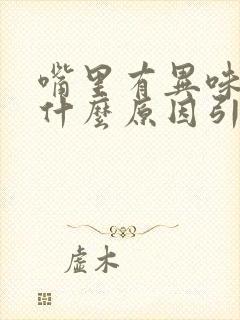 嘴里有異味
什麼原因引
虚木